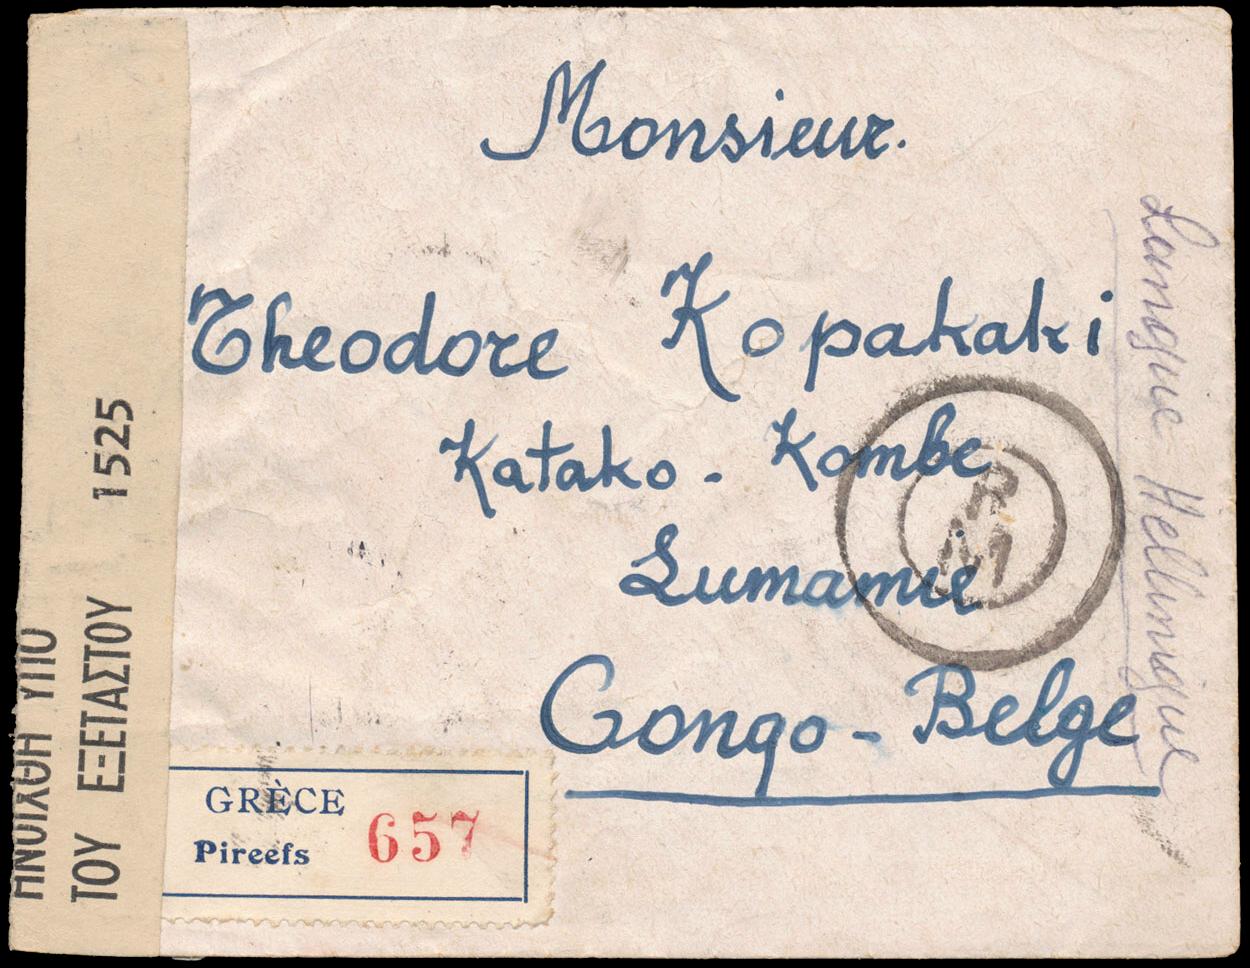 Monsieur.
Theodore Kopakaki
Katako - Kombe
Lumamie
Congo - Belge
Langue Hellinique
R
M
GRÈCE
Pireefs
657
ΗΝΟΙΧΘΗ ΥΠΟ
ΤΟΥ ΕΞΕΤΑΣΤΟΥ 1525